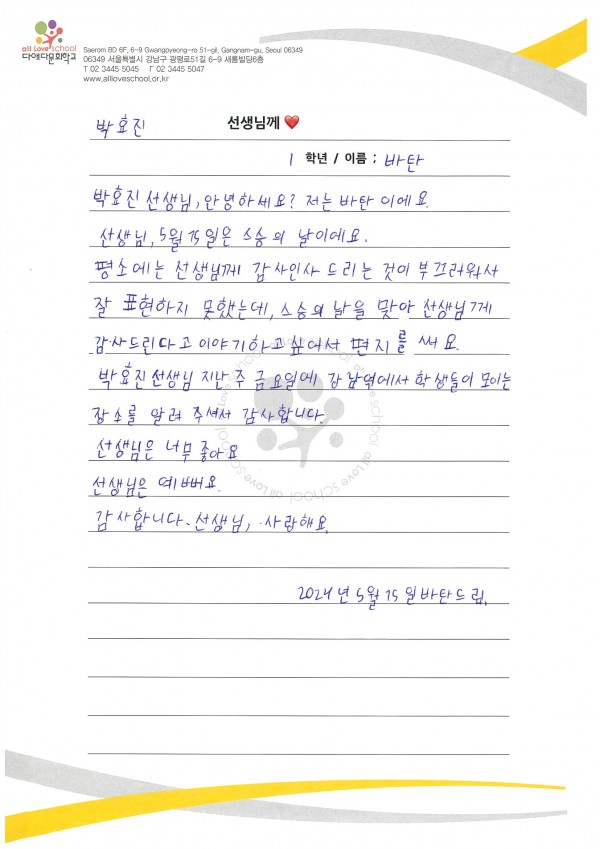 all Love school
다애다문화학교
Saerom BD 6F, 6-9 Gwangpyeong-ro 51-gil, Gangnam-gu, Seoul 06349
06349 서울특별시 강남구 광평로51길 6-9 새롬빌딩6층
T 02 3445 5045 F 02 3445 5047
www.allloveschool.or.kr
박효진 선생님께 ❤️
1 학년 / 이름 ; 바탄
박효진 선생님, 안녕하세요? 저는 바탄 이에요.
선생님, 5월 15일은 스승의 날이에요.
평소에는 선생님께 감사인사 드리는 것이 부끄러워서
잘 표현하지 못했는데, 스승의 날을 맞아 선생님께
감사드린다고 이야기하고 싶어서 편지를 써요.
박효진 선생님 지난 주 금요일에 강남역에서 학생들이 모이는
장소를 알려 주셔서 감사합니다.
선생님은 너무 좋아요
선생님은 예뻐요.
감사합니다. 선생님, 사랑해요.
2024년 5월 15일 바탄드림.
all Love school all Love school all Love school all Love school